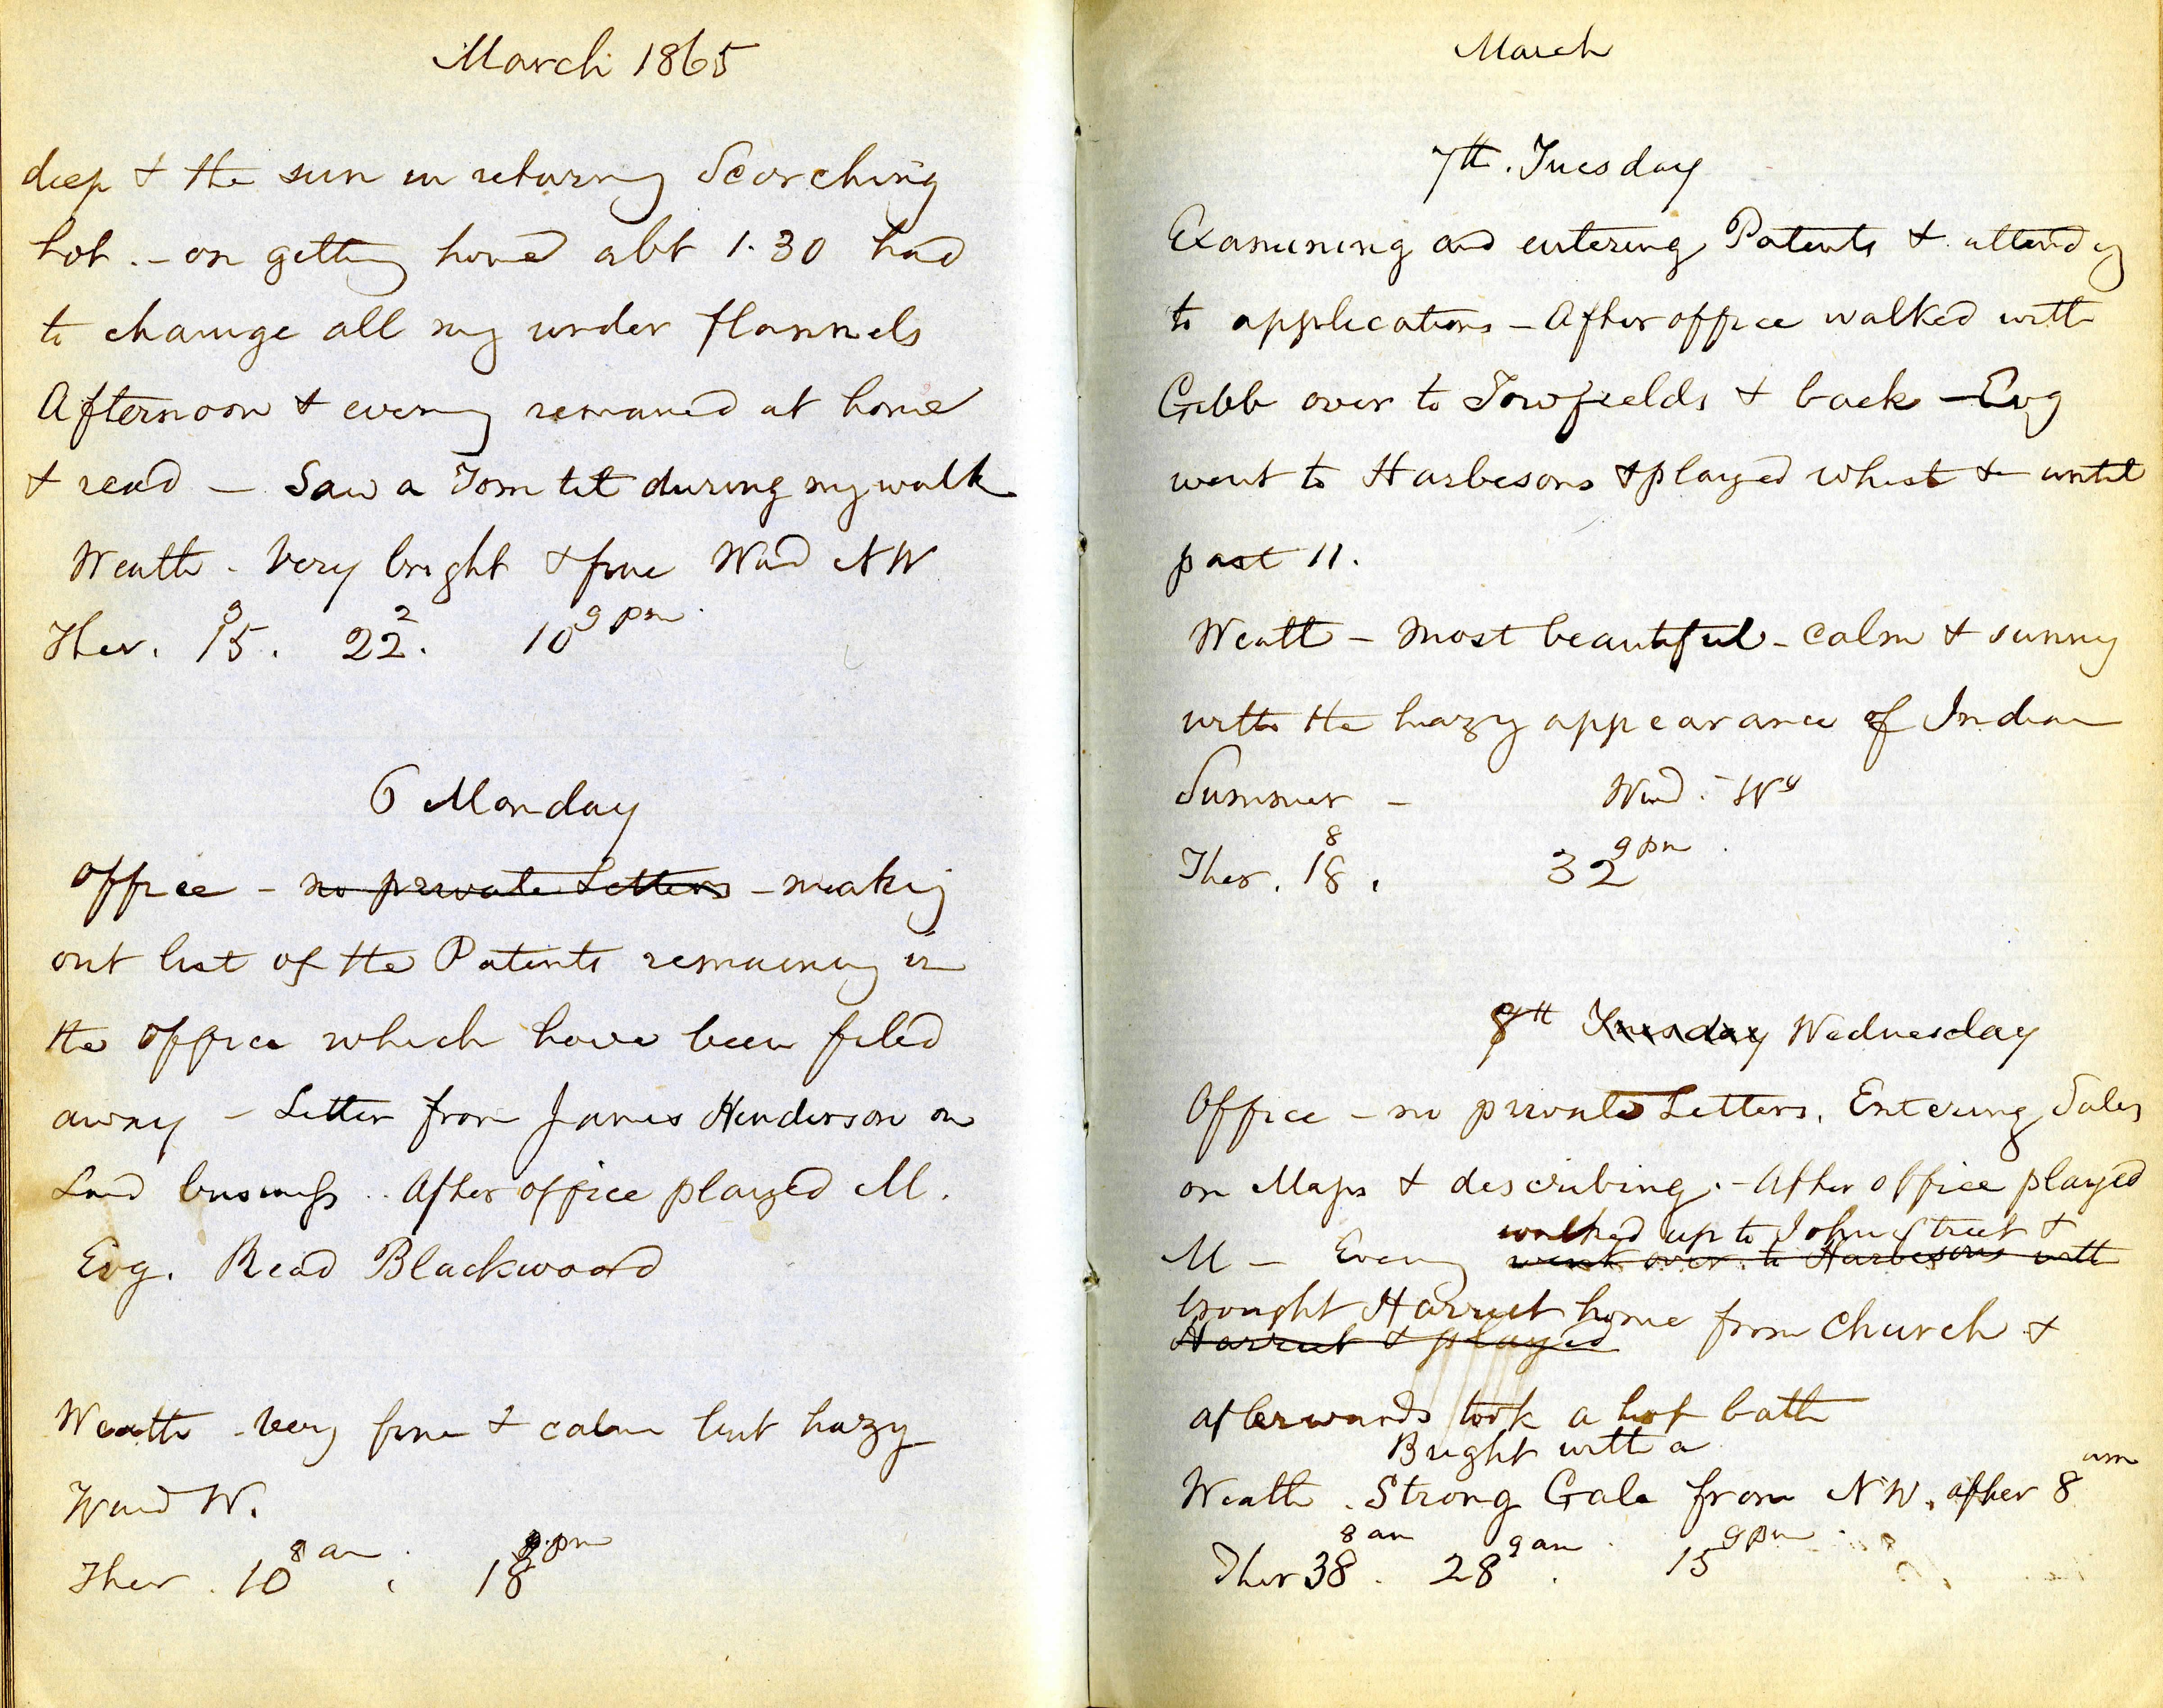 March 1865
deep & the sun in returng Scorching
hot. - on getting home abt 1.30 had
to change all my under flannels
Afternoon & eveng remained at home
& read - Saw a Tom tit during my walk
Weathr - Very bright & fine Wind NW
Ther. 15.⁹ 22.² 10 ⁹ ᵖᵐ
6 Monday
Office - no private Letters - makig
out list of the Patents remaining in
the Office which have been filed
away - Letter from James Henderson on
Land business.. After office played M.
Evg. Read Blackwood
Weathr - very fine & calm but hazy
Wind W.
Ther. 10 ⁸ ᵃᵐ. 18 ⁹ ᵖᵐ
March
7th. Tuesday
Examining and entering Patents & attendg
to applications - After office walked with
Gibb over to Towfields & back - Evg
went to Harbesons & played whist &c until
past 11.
Weathr - Most beautiful - calm & sunny
with the hazy appearance of Indian
Summer - Wind - Wy
Ther. 18⁸. 32 ⁹ ᵖᵐ.
8th Tuesday Wednesday
Office - no private Letters. Entering Sales
on Maps & describing. - After office played
walked up to John Street &
M - Eveng went over to Harbesons with
brought Harriet home from Church &
Harriet & played
afterwards took a hot bath
Bright with a
Weathr. Strong Gale from NW. after 8 ᵃᵐ
Ther 38 ⁸ ᵃᵐ. 28 ⁹ ᵃᵐ. 15 ⁹ ᵖᵐ.